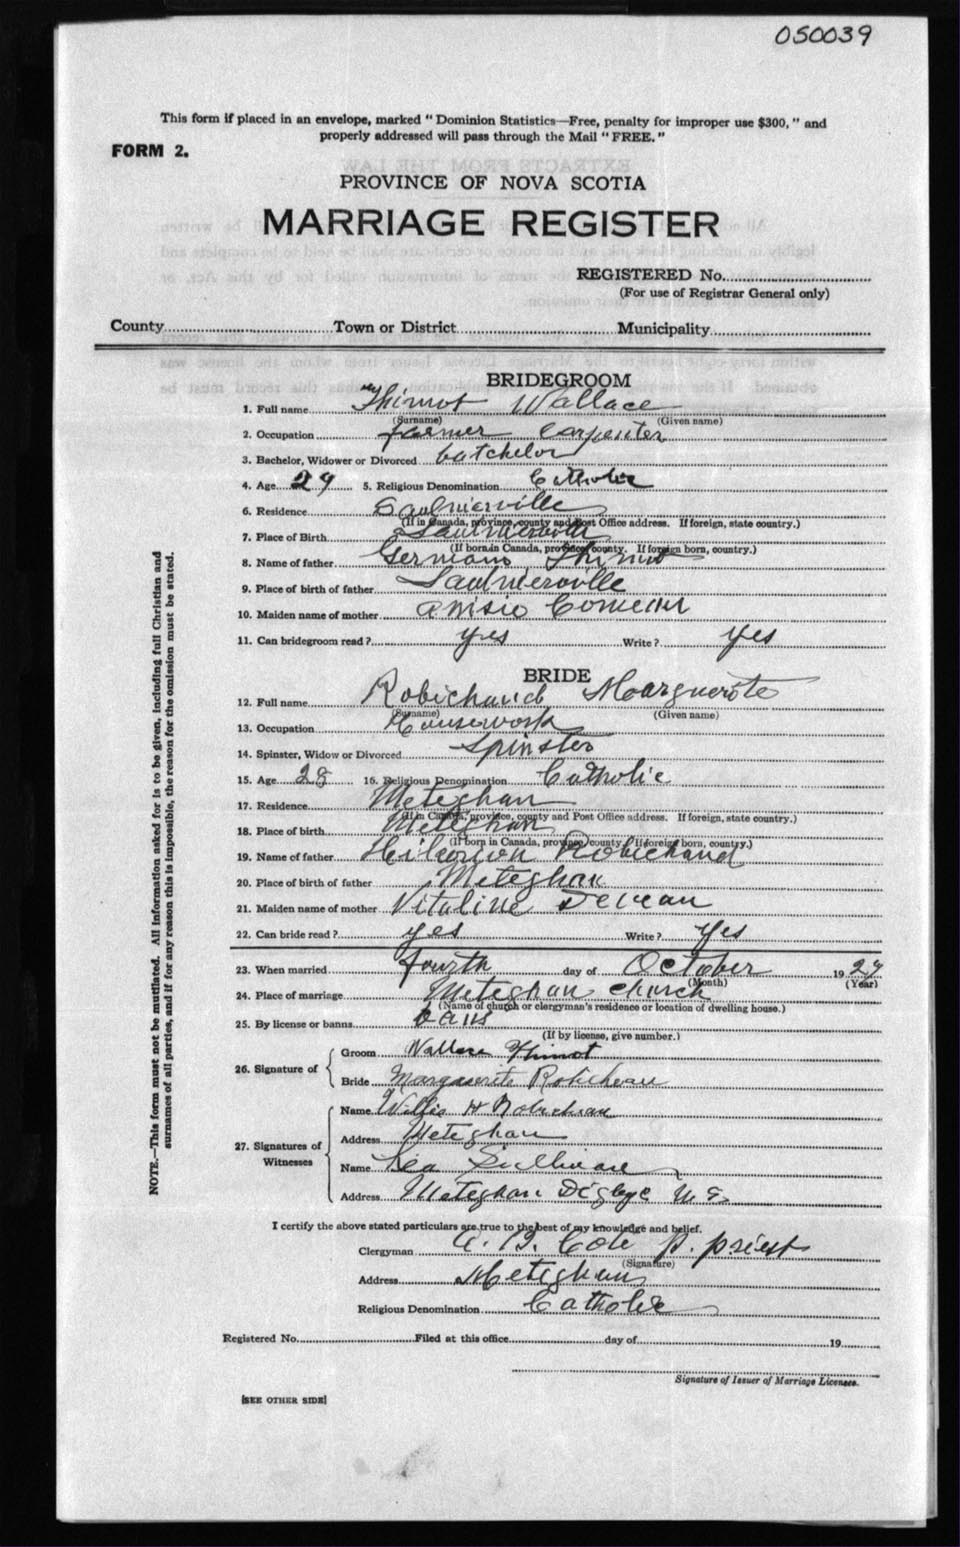 050039
This form if placed in an envelope, marked "Dominion Statistics—Free, penalty for improper use $300," and
properly addressed will pass through the Mail "FREE."
FORM 2.
PROVINCE OF NOVA SCOTIA
MARRIAGE REGISTER
REGISTERED No.
(For use of Registrar General only)
County Town or District Municipality
BRIDEGROOM
1. Full name Thimot Wallace
(Surname) (Given name)
2. Occupation farmer Carpenter
3. Bachelor, Widower or Divorced batchelor
4. Age 29 5. Religious Denomination Catholic
6. Residence Saulnierville
(If in Canada, province, county and Post Office address. If foreign, state country.)
7. Place of Birth Saulnierville
(If born in Canada, province, county. If foreign born, country.)
8. Name of father Germans Thimot
9. Place of birth of father Saulnierville
10. Maiden name of mother Comeau
11. Can bridegroom read? yes Write? yes
BRIDE
12. Full name Robichaud Marguerite
(Surname) (Given name)
13. Occupation Housework
14. Spinster, Widow or Divorced Spinster
15. Age 28 16. Religious Denomination Catholic
17. Residence Meteghan
(If in Canada, province, county and Post Office address. If foreign, state country.)
18. Place of birth Meteghan
(If born in Canada, province, county. If foreign born, country.)
19. Name of father Robichaud
20. Place of birth of father Meteghan
21. Maiden name of mother Vitaline Deveau
22. Can bride read? yes Write? yes
23. When married fourth day of October 1929
(Month) (Year)
24. Place of marriage Meteghan church
(Name of church or clergyman's residence or location of dwelling house.)
25. By license or banns bans
(If by license, give number.)
26. Signature of
Groom Wallace Thimot
Bride Marguerite Robicheau
27. Signatures of
Witnesses
Name Willis H Robicheau
Address Meteghan
Name Lea
Address Meteghan Digby
I certify the above stated particulars are true to the best of my knowledge and belief.
Clergyman A. B. Cote p. priest
(Signature)
Address Meteghan
Religious Denomination Catholic
Registered No. Filed at this office day of 19
Signature of Issuer of Marriage Licenses.
[SEE OTHER SIDE]
NOTE.—This form must not be mutilated. All information asked for is to be given, including full Christian and
surnames of all parties, and if for any reason this is impossible, the reason for the omission must be stated.